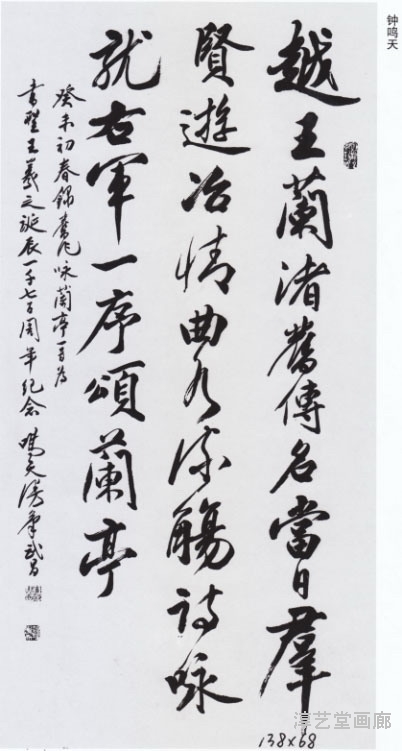 钟鸣天
越王蘭渚舊傳名當日羣
賢遊冶情曲水流觴詩咏
就右軍一序頌蘭亭
癸未初春錦舊作咏蘭亭一首为
書聖王羲之誕辰一千七百周年纪念 鳴天筆武昌
138x68
淳艺堂画廊